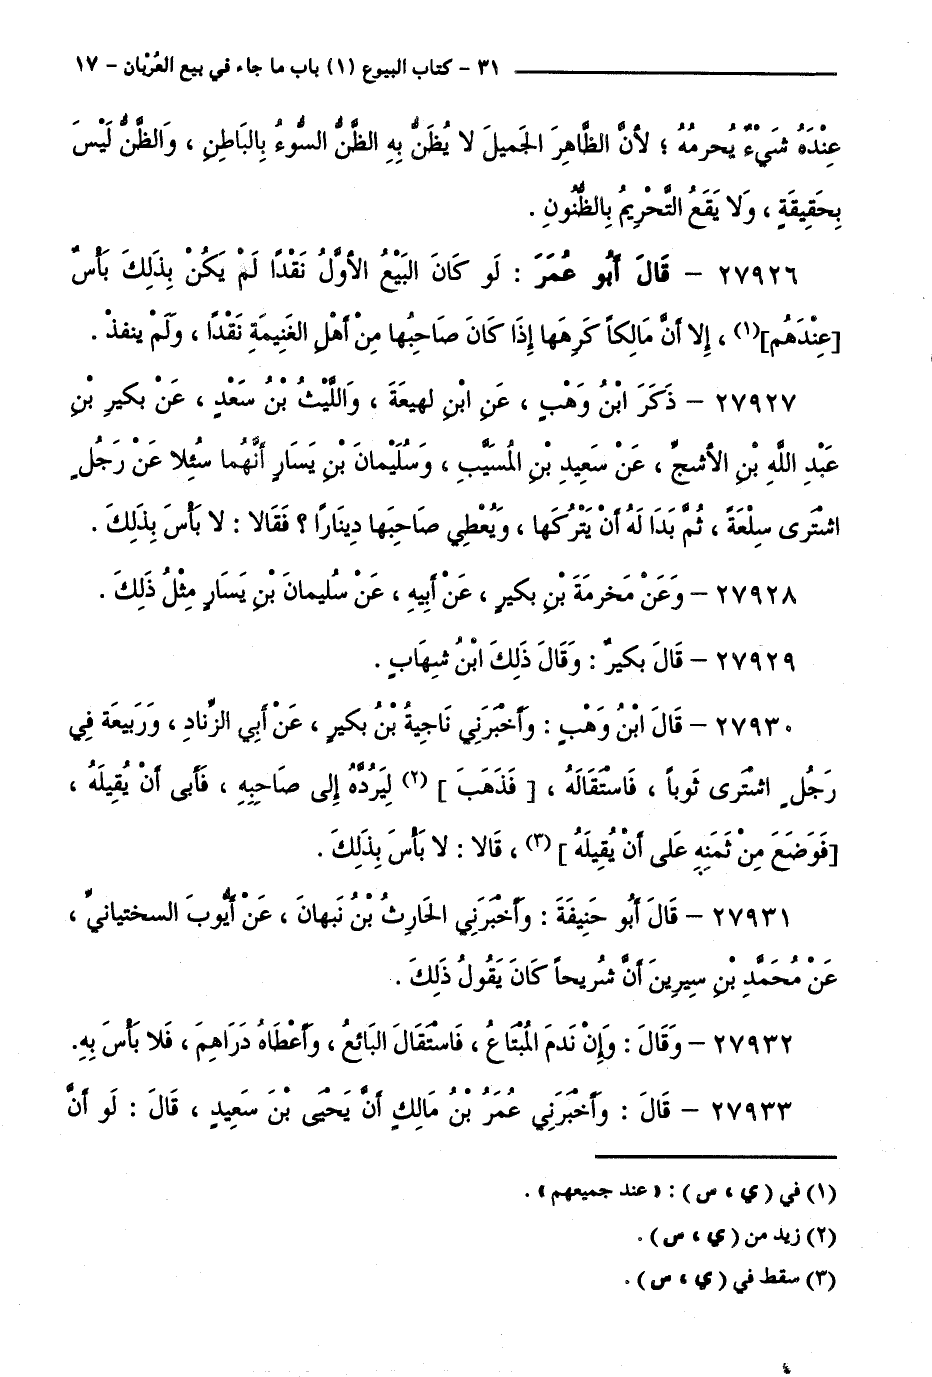 ٣١ - كتاب البيوع (١) باب ما جاء في بيع العُرْبان - ١٧
عِنْدَهُ شَيْءٌ يُحرمُهُ ؛ لأنَّ الظَّاهِرَ الجَميلَ لا يُظَنُّ بِهِ الظَّنُّ السُّوءُ بِالبَاطِنِ ، وَالظَّنُّ لَيْسَ
بِحَقِيقَةٍ ، وَلا يَقَعُ التَّحْرِيمُ بِالظُّنُونِ .
٢٧٩٢٦ - قَالَ أَبُو عُمَرَ : لَو كَانَ البَيْعُ الأوَّلُ نَقْدًا لَمْ يَكُنْ بِذَلِكَ بَأْسٌ
[عِنْدَهُم](١) ، إِلا أَنَّ مَالِكاً كَرِهَها إِذَا كَانَ صَاحِبُها مِنْ أَهْلِ الغَنِيمَةِ نَقْدًا ، وَلَمْ ينفذْ .
٢٧٩٢٧ - ذَكَرَ ابْنُ وَهْبٍ ، عَنِ ابْنِ لهيعَةَ ، وَاللَّيْثُ بْنُ سَعْدٍ ، عَنْ بكيرِ بْنِ
عَبْدِ اللَّهِ بْنِ الأشجِّ ، عَنْ سَعِيدِ بْنِ المُسَيَّبِ ، وَسُلَيْمانَ بْنِ يَسَارٍ أَنَّهُما سُئِلا عَنْ رَجُلٍ
اشْتَرى سِلْعَةً ، ثُمَّ بَدَا لَهُ أَنْ يَتْرُكَها ، وَيُعْطِي صَاحِبَها دِينَارًا ؟ فَقَالا : لا بَأْسَ بِذَلِكَ .
٢٧٩٢٨ - وَعَنْ مَخرمَةَ بْنِ بكيرٍ ، عَنْ أَبِيهِ ، عَنْ سُليمانَ بْنِ يَسَارٍ مِثْلُ ذَلِكَ .
٢٧٩٢٩ - قَالَ بكيرٌ : وَقَالَ ذَلِكَ ابْنُ شِهَابٍ .
٢٧٩٣٠ - قَالَ ابْنُ وَهْبٍ : وَأَخْبَرَنِي نَاجِيةُ بْنُ بكيرٍ ، عَنْ أَبِي الزِّنادِ ، وَرَبِيعَة فِي
رَجُلٍ اشْتَرى ثَوباً ، فَاسْتَقَالَهُ ، [ فَذَهَبَ ] (٢) لِيَرُدَّهُ إِلى صَاحِبِهِ ، فَأَبى أَنْ يُقيلَهُ ،
[فَوَضَعَ مِنْ ثَمَنِهِ عَلى أَنْ يُقِيلَهُ ] (٣) ، قَالا : لا بَأْسَ بِذَلِكَ .
٢٧٩٣١ - قَالَ أَبُو حَنِيفَةَ : وَأَخْبَرَنِي الحَارِثُ بْنُ نَبهانَ ، عَنْ أَيُّوبَ السختيانيِّ ،
عَنْ مُحَمَّدِ بْنِ سِيرِينَ أَنَّ شُرِيحاً كَانَ يَقُولُ ذَلِكَ .
٢٧٩٣٢ - وَقَالَ : وَإِنْ نَدمَ المُبْتَاعُ ، فَاسْتَقَالَ البَائعُ ، وَأَعْطَاهُ دَرَاهِمَ ، فَلا بَأْسَ بِهِ.
٢٧٩٣٣ - قَالَ : وَأَخْبَرَنِي عُمَرُ بْنُ مَالِكٍ أَنَّ يَحْيَى بْنَ سَعِيدٍ ، قَالَ : لَو أَنَّ
(١) في ( ي ، س ) : « عند جميعهم » .
(٢) زيد من ( ي ، س ) .
(٣) سقط في ( ي ، س ) .